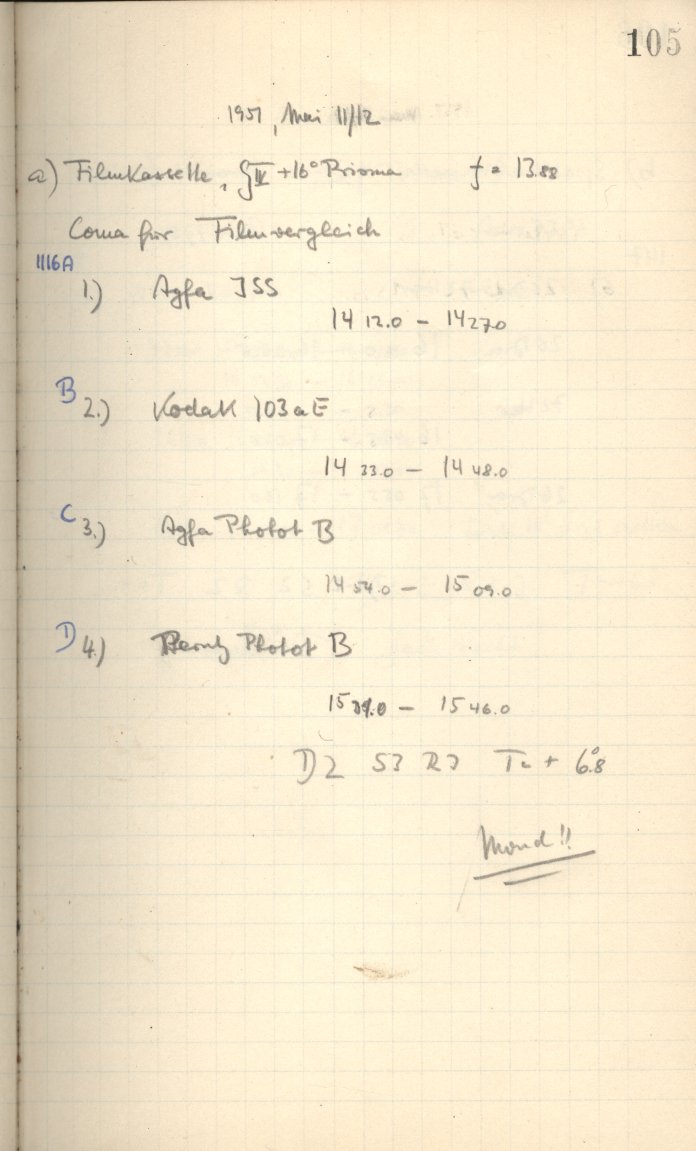 105
1951, Mai 11/12
a) Filmkassette, IV +16° Prisma f = 13.88
Coma für Filmvergleich
1116A
1.) Agfa ISS
14 12.0 - 14 27.0
B 2.) Kodak 103aE
14 33.0 - 14 48.0
C 3.) Agfa Photot B
14 54.0 - 15 09.0
D 4.) Photot B
15 - 15 46.0
D2 S3 R3 T + 6°.8
Mond!!